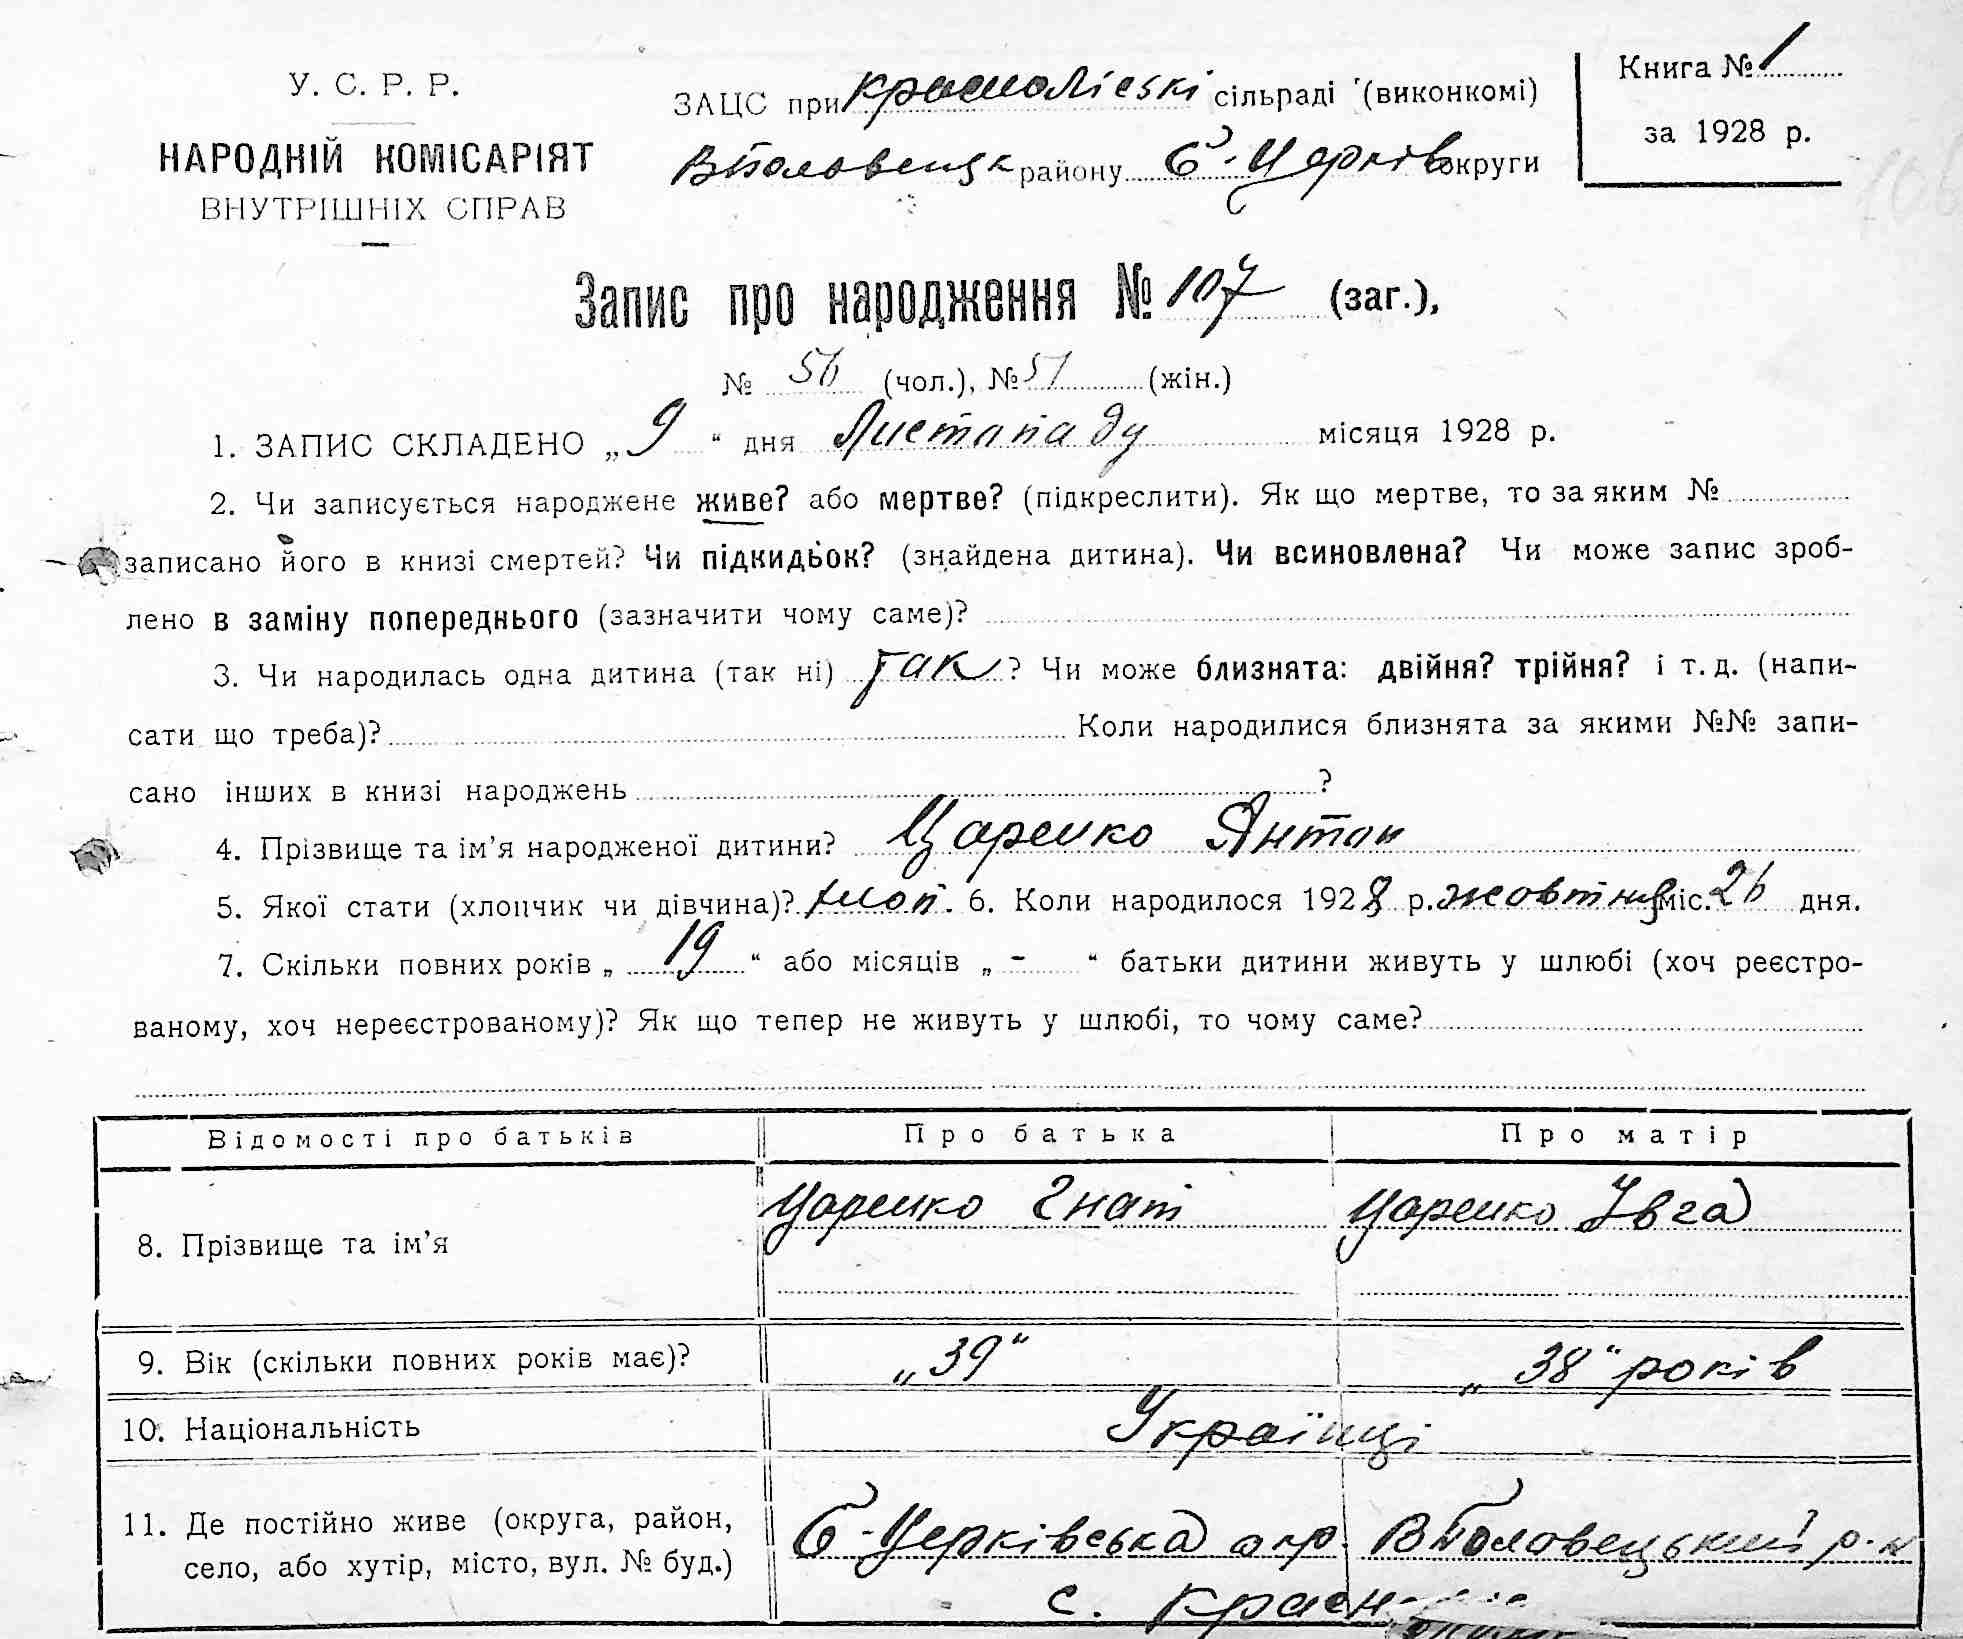 У. С. Р. Р.
НАРОДНІЙ КОМІСАРІЯТ
ВНУТРІШНІХ СПРАВ
ЗАЦС при Краснолієські сільраді (виконкомі)
ВПоловецьк району Б-Церків округи
Книга № 1
за 1928 р.
Запис про народження № 107 (заг.),
№ 56 (чол.), № 51 (жін.)
1. ЗАПИС СКЛАДЕНО „ 9 “ дня Листопаду місяця 1928 р.
2. Чи записується народжене живе? або мертве? (підкреслити). Як що мертве, то за яким №
записано його в книзі смертей? Чи підкидьок? (знайдена дитина). Чи всиновлена? Чи може запис зроб-
лено в заміну попереднього (зазначити чому саме)?
3. Чи народилась одна дитина (так ні) так ? Чи може близнята: двійня? трійня? і т. д. (напи-
сати що треба)? Коли народилися близнята за якими №№ запи-
сано інших в книзі народжень ?
4. Прізвище та ім’я народженої дитини? Царенко Антон
5. Якої стати (хлопчик чи дівчина)? хлоп. 6. Коли народилося 1928 р. жовтня міс. 26 дня.
7. Скільки повних років „ 19 “ або місяців „ - “ батьки дитини живуть у шлюбі (хоч реєстро-
ваному, хоч нереєстрованому)? Як що тепер не живуть у шлюбі, то чому саме?
Відомості про батьків Про батька Про матір
8. Прізвище та ім’я Царенко Гнат Царенко Ївга
9. Вік (скільки повних років має)? „39“ „38“ років
10. Національність Українці
11. Де постійно живе (округа, район, Б-Церківська окр. ВПоловецький р-н
село, або хутір, місто, вул. № буд.) с.